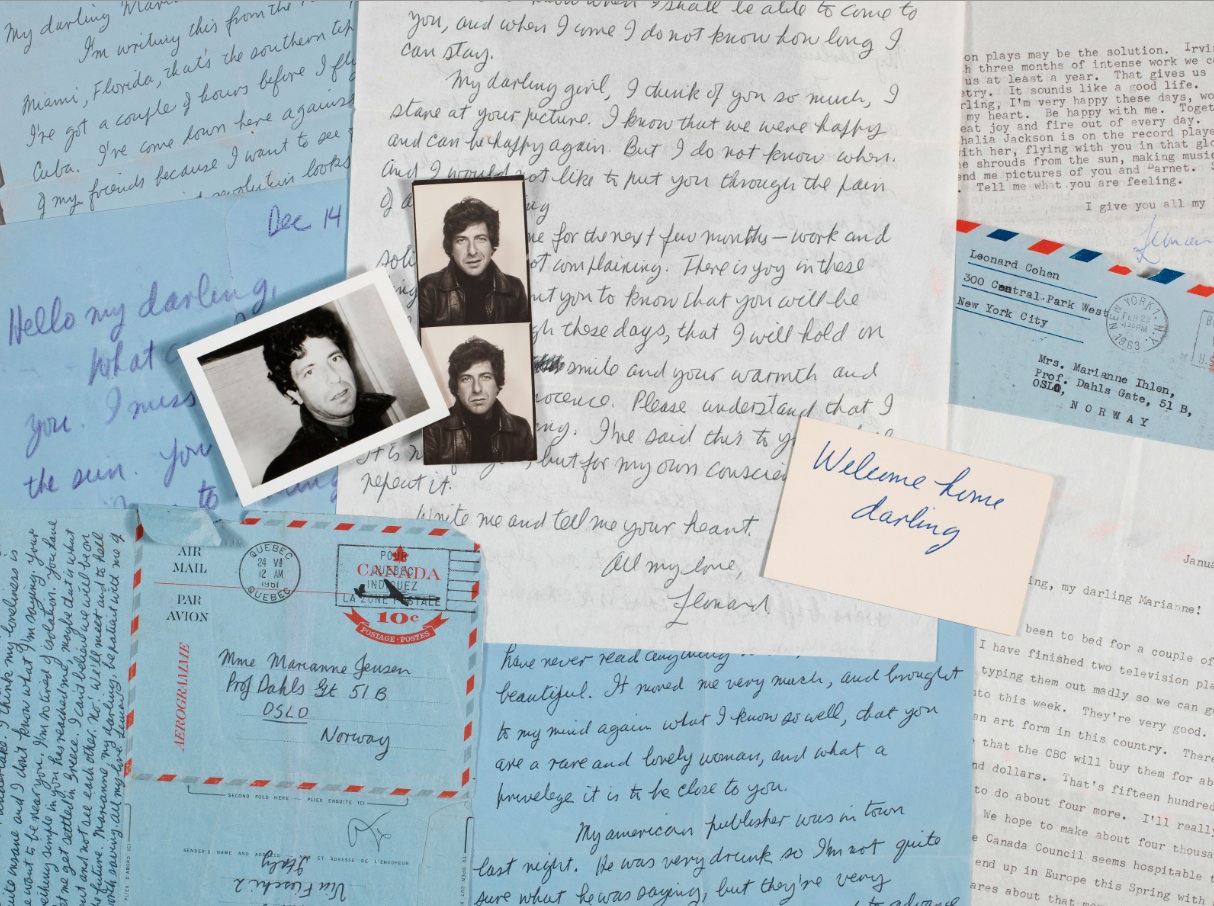 My darling
I'm writing this from the
Miami, Florida, that's the southern tip
I've got a couple of hours before I fl
Cuba. I've come down here agains
my friends because I want to see
revolution looks
Dec 14
Hello my darling,
What
you. I miss
the sun. You
to
know when I shall be able to come to
you, and when I come I do not know how long I
can stay.
My darling girl, I think of you so much, I
stare at your picture. I know that we were happy
and can be happy again. But I do not know when.
and I would not like to put you through the pain
me for the next few months – work and
not complaining. There is joy in these
ut you to know that you will be
gh these days, that I will hold on
smile and your warmth and
nocence. Please understand that I
ny. I've said this to y
but for my own conscie
repeat it.
Write me and tell me your heart.
All my love,
Leonard
on plays may be the solution. Irvi
h three months of intense work we c
us at least a year. That gives us
etry. It sounds like a good life.
rling, I'm very happy these days, wo
my heart. Be happy with me. Toget
eat joy and fire out of every day.
halia Jackson is on the record playe
ith her, flying with you in that glo
e shrouds from the sun, making music
end me pictures of you and Barnet. S
. Tell me what you are feeling.
I give you all my
Leonar
Leonard Cohen
300 Central-Park West
New York City
NEW YORK, N.Y.
FEB 23
1963
U.S
Mrs. Marianne Ihlen,
Prof. Dahls Gate, 51 B,
OSLO,
NORWAY
Welcome home
darling
AIR
MAIL
PAR
AVION
AEROGRAMME
QUEBEC
24 VII
12 AM
1961
QUEBEC
POUR
INDIQUEZ
LA ZONE POSTALE
CANADA
10¢
POSTAGE-POSTES
Mme Marianne Jensen
Prof Dahls Gt 51 B
OSLO
Norway
SECOND FOLD HERE — PLIEZ ENSUITE ICI
SENDER'S NAME AND ADDRESS
ET ADRESSE DE L'ENVOYEUR
Italy
I think my loneliness is
quite insane and I don't know what I'm saying. Your
want to be near you. I'm so tired of isolation. You have
thing simple in you has reached me, maybe this is what
me get settled in Greece. I can't believe we will be
out and not see each other. No! We'll meet and to hell
the future. Marianne, my darling, be patient with me
all my love
have never read anything
beautiful. It moved me very much, and brought
to my mind again what I know so well, that you
are a rare and lovely woman, and what a
privelege it is to be close to you.
My american publisher was in town
last night. He was very drunk so I'm not quite
sure what he was saying, but they're very
to advance
Janua
ing, my darling Marianne!
been to bed for a couple of
I have finished two television pla
typing them out madly so we can g
nto this week. They're very good.
an art form in this country. There
that the CBC will buy them for ab
nd dollars. That's fifteen hundred
to do about four more. I'll really
We hope to make about four thousa
e Canada Council seems hospitable t
end up in Europe this Spring with
ares about that mon